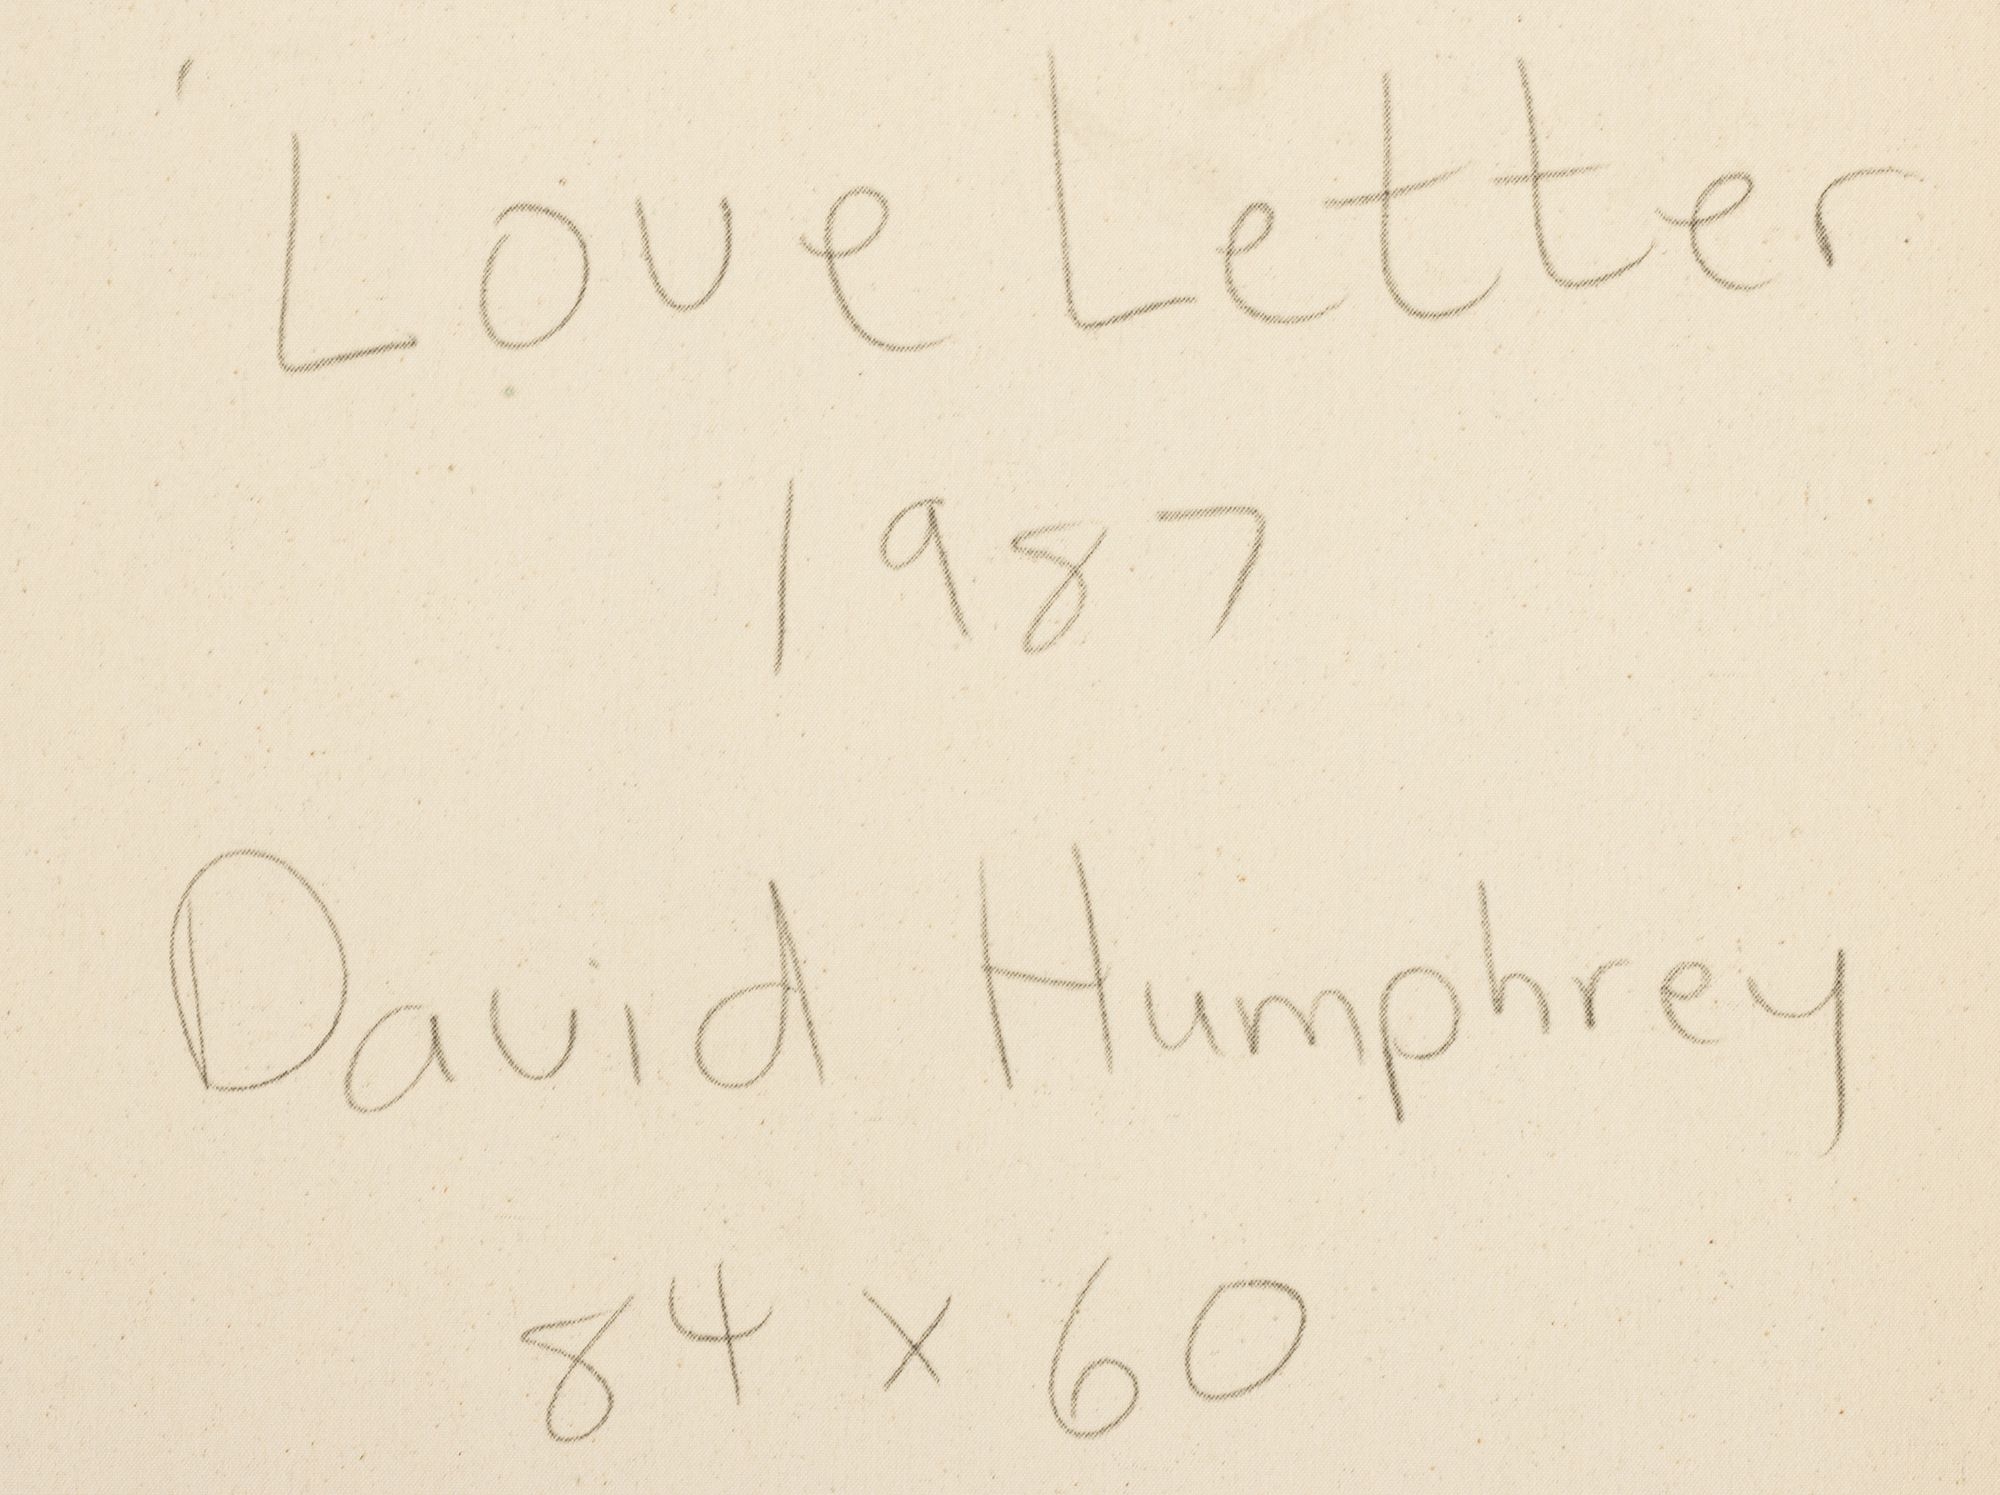 'Love Letter
1987
David Humphrey
84 x 60